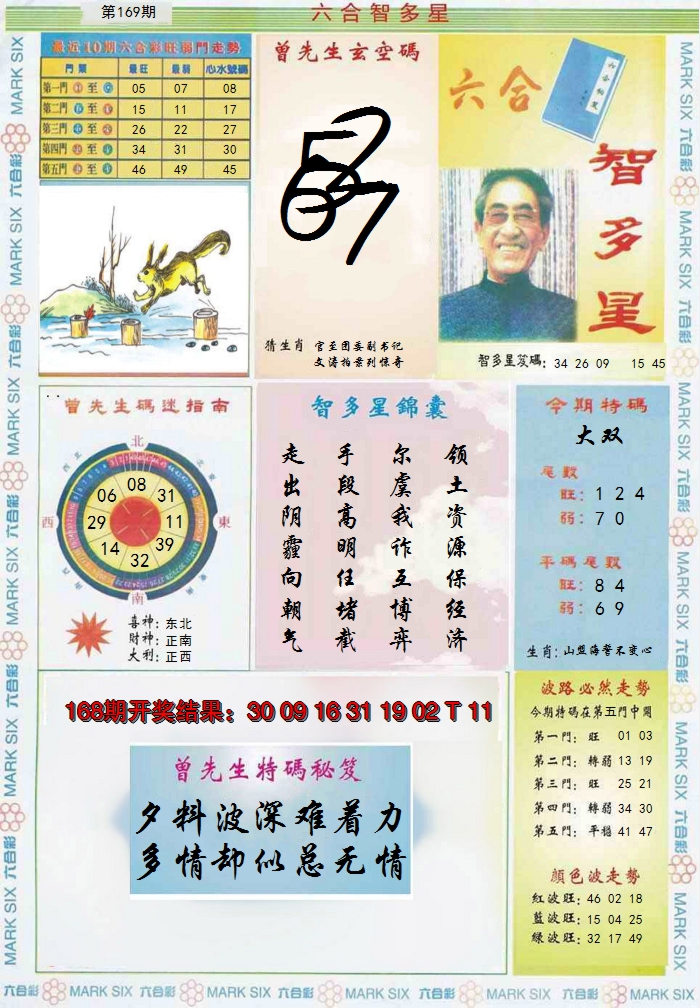 第169期
六合智多星
最近10期六合彩旺弱門走勢
門類 最旺 最弱 心水號碼
第一門 至 05 07 08
第二門 至 15 11 17
第三門 至 26 22 27
第四門 至 34 31 30
第五門 至 46 49 45
曾先生玄空碼
猜生肖 官至团委副书记
文涛拍案列惊奇
六合
智多星
智多星笈碼: 34 26 09 15 45
曾先生碼迷指南
北
西
東
南
06 08 31
29 11
14 32 39
喜神: 东北
財神: 正南
大利: 正西
智多星錦囊
走出阴霾向朝气
手段高明任堵截
尔虞我诈互博弈
领土资源保经济
今期特碼
大双
尾數
旺: 1 2 4
弱: 7 0
平碼尾數
旺: 8 4
弱: 6 9
生肖: 山盟海誓不变心
168期开奖结果：30 09 16 31 19 02 T 11
曾先生特碼秘笈
夕料波深难着力
多情却似总无情
波路必然走勢
今期特碼在第五門中開
第一門: 旺 01 03
第二門: 轉弱 13 19
第三門: 旺 25 21
第四門: 轉弱 34 30
第五門: 平穩 41 47
顏色波走勢
紅波旺: 46 02 18
藍波旺: 15 04 25
綠波旺: 32 17 49
MARK SIX 六合彩